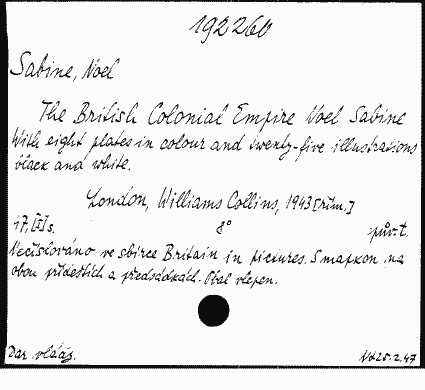 192260
Sabine, Noel
The British Colonial Empire Noel Sabine
With eight plates in colour and twenty-five illustrations
black and white.
London, Williams Collins, 1943 [rim.]
17, [I] s. 8° pův. t.
Nečíslováno ve sbírce Britain in pictures. S mapkou na
obou přídeštích a předsádkách. Obal vlepen.
Dar vlády.
25.2.47